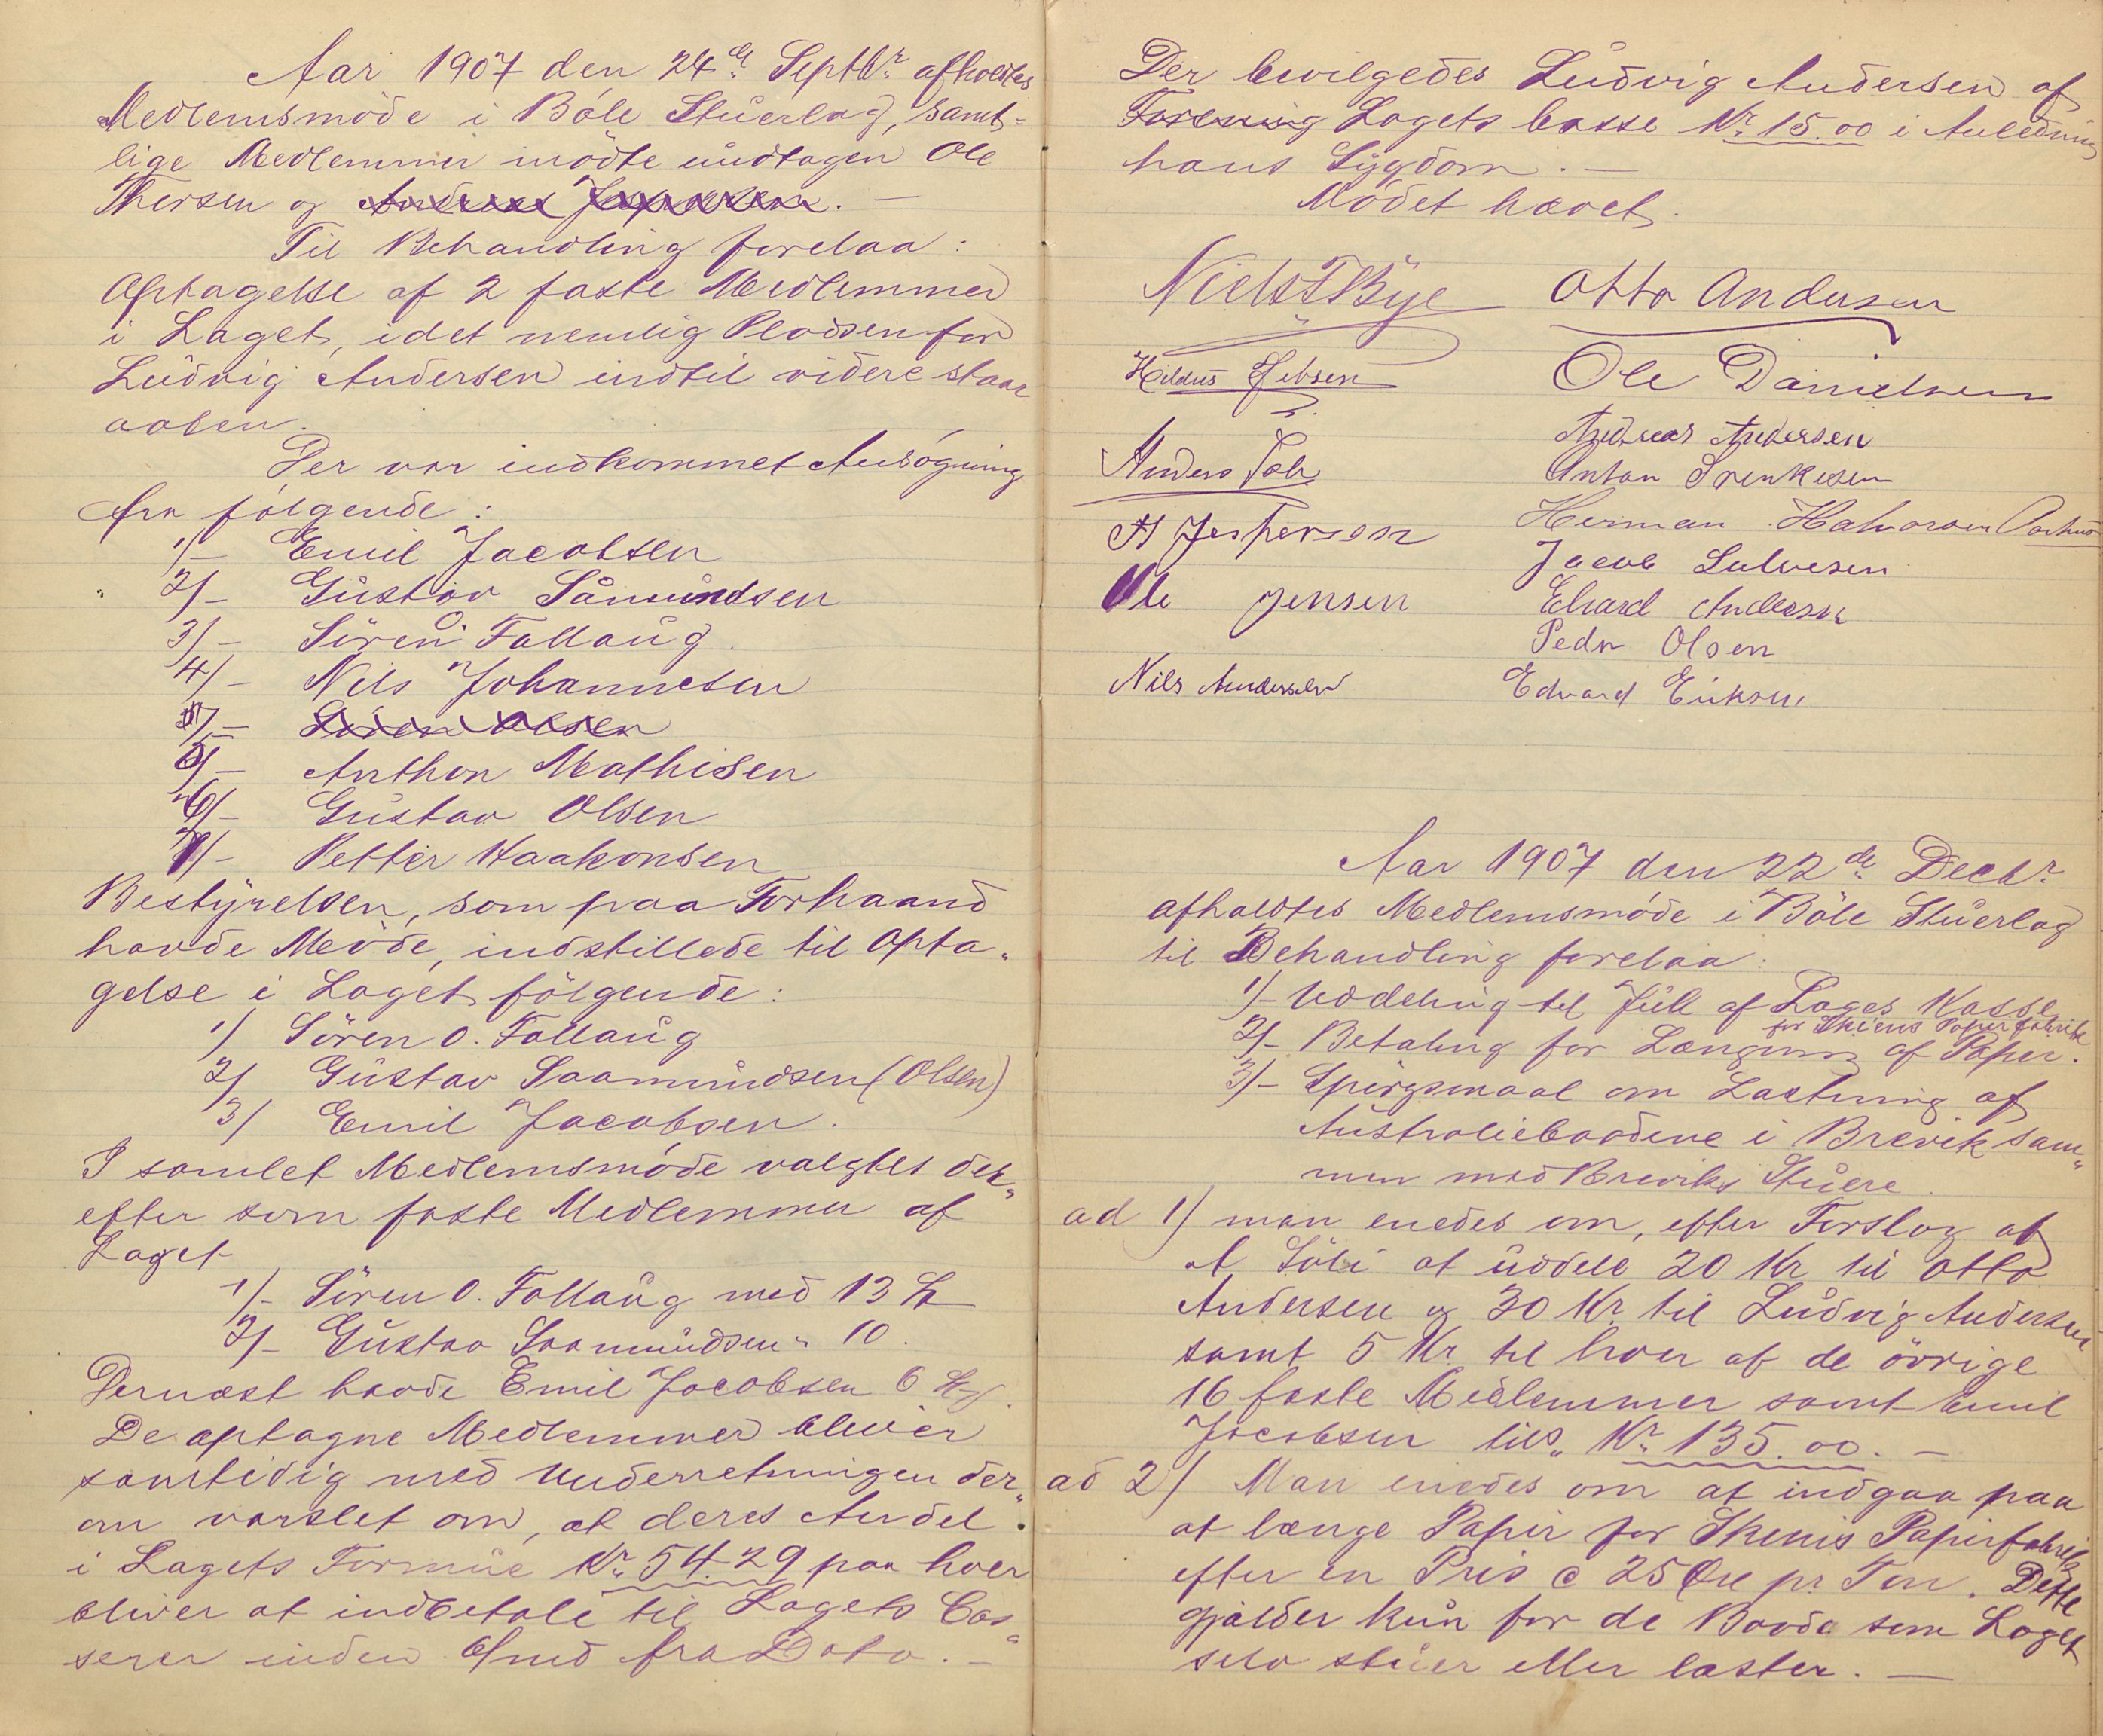 Aar 1907 den 24de Septbr. afholdtes
Medlemsmöde i Böle Stuerlag, samt-
lige Medlemmer mödte undtagen Ole
Thersen og Andreas Jespersen. —
Til Behandling forelaa:
Optagelse af 2 faste Medlemmer
i Laget, idet nemlig Pladsen for
Ludvig Andersen indtil videre staar
aaben.
Der var indkommet Ansögning
fra fölgende:
1/- Emil Jacobsen
2/- Gustav Såmundsen
3/- Sören O. Follaug.
4/- Nils Johannesen
Sören Olsen
5/- Anthon Mathisen
6/- Gustav Olsen
7/- Petter Haakonsen
Bestyrelsen, som paa Forhaand
havde Möde, indstillede til Opta-
gelse i Laget fölgende:
1/ Sören O. Follaug
2/ Gustav Saamundsen (Olsen)
3/ Emil Jacobsen.
I samlet Medlemsmöde valgtes der-
efter som faste Medlemmer af
Laget
1/- Sören O. Follaug med 13 St
2/- Gustav Saamundsen " 10.
Dernæst havde Emil Jacobsen 6 St.
De optagne Medlemmer bliver
samtidig med Underretningen der-
om varslet om, at deres Andel
i Lagets Formue Kr. 54.29 paa hver
bliver at indbetale til Lagets Cas-
serer inden 6 fra Dato. —
Der bevilgedes Ludvig Andersen af
Forening Lagets kasse Kr. 15.00 i Anledning
hans Sygdom. —
Mödet hævet.
Niels T Bye Otto Andersen
Hildus Jebsen Ole Danielsen
Andreas Andersen
Anders Anton Srenkesen
A Jespersen Herman Halvorsen
Jacob Lulvesen
Ole Jensen Edvard Andersen
Peder Olsen
Nils Andersen Edvard Eriksen
Aar 1907 den 22de Decbr.
afholdtes Medlemsmöde i Böle Stuerlag
til Behandling forelaa:
1/- Uddeling til Jull af Lages Kasse
for Skiens Papirfabrik
2/- Betaling for Længning af Papir.
3/- Spörgsmaal om Lastning af
Australiebaadene i Brevik sam-
men med Breviks Stuere.
ad 1/ man enedes om, efter Forslag af
A. Söli at uddele 20 Kr til Otto
Andersen og 30 Kr. til Ludvig Andersen
samt 5 Kr. til hver af de övrige
16 faste Medlemmer samt Emil
Jacobsen tils. Kr. 135.00. —
ad 2/ Man enedes om at indgaa paa
at længe Papir for Skiens Papirfabrik
efter en Pris a 25 Öre pr. Ton. Dette
gjælder kun for de Baade som Laget
selv stuer eller laster. —